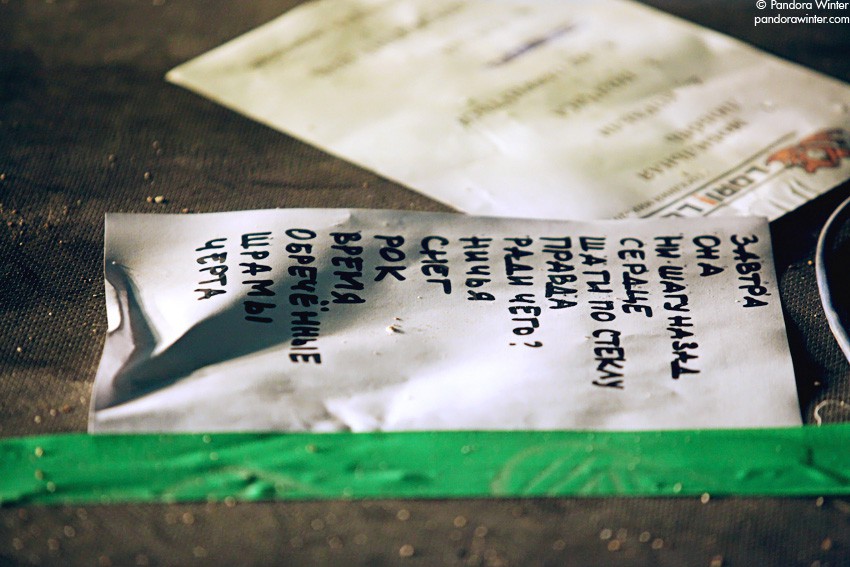 © Pandora Winter
pandorawinter.com
ЗАВТРА
ОНА
НИ ШАГУ НАЗАД
СЕРДЦЕ
ШАГИ ПО СТЕКЛУ
ПРАВДА
РАДИ ЧЕГО?
НИЧЬЯ
СНЕГ
РОК
ВРЕМЯ
ОБРЕЧЁННЫЕ
ШРАМЫ
ЧЕРТА